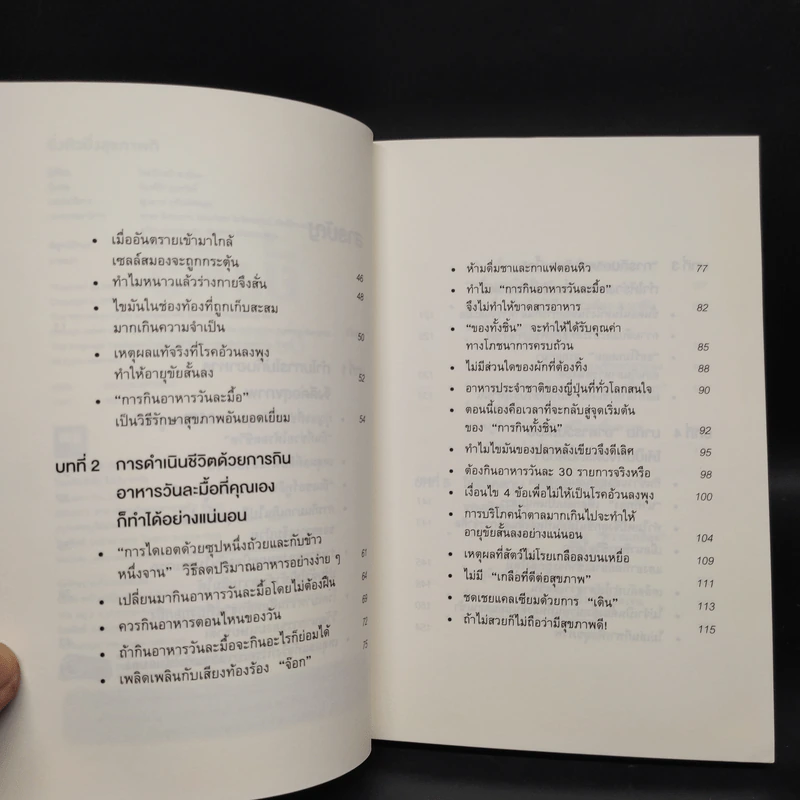 • เมื่ออันตรายเข้ามาใกล้
เซลล์สมองจะถูกกระตุ้น 46
• ทำไมหนาวแล้วร่างกายจึงสั่น 48
• ไขมันในช่องท้องที่ถูกเก็บสะสม
มากเกินความจำเป็น 50
• เหตุผลแท้จริงที่โรคอ้วนลงพุง
ทำให้อายุขัยสั้นลง 52
• “การกินอาหารวันละมื้อ”
เป็นวิธีรักษาสุขภาพอันยอดเยี่ยม 54
บทที่ 2 การดำเนินชีวิตด้วยการกิน
อาหารวันละมื้อที่คุณเอง
ก็ทำได้อย่างแน่นอน
• “การไดเอตด้วยซุปหนึ่งถ้วยและกับข้าว
หนึ่งจาน” วิธีลดปริมาณอาหารอย่างง่าย ๆ 61
• เปลี่ยนมากินอาหารวันละมื้อโดยไม่ต้องฝืน 64
• ควรกินอาหารตอนไหนของวัน 69
• ถ้ากินอาหารวันละมื้อจะกินอะไรก็ย่อมได้ 72
• เพลิดเพลินกับเสียงท้องร้อง “จ๊อก” 75
• ห้ามดื่มชาและกาแฟตอนหิว 77
• ทำไม “การกินอาหารวันละมื้อ”
จึงไม่ทำให้ขาดสารอาหาร 82
• “ของทั้งชิ้น” จะทำให้ได้รับคุณค่า
ทางโภชนาการครบถ้วน 85
• ไม่มีส่วนใดของผักที่ต้องทิ้ง 88
• อาหารประจำชาติของญี่ปุ่นที่ทั่วโลกสนใจ 90
• ตอนนี้เองคือเวลาที่จะกลับสู่จุดเริ่มต้น
ของ “การกินทั้งชิ้น” 92
• ทำไมไขมันของปลาหลังเขียวจึงดีเลิศ 95
• ต้องกินอาหารวันละ 30 รายการจริงหรือ 98
• เงื่อนไข 4 ข้อเพื่อไม่ให้เป็นโรคอ้วนลงพุง 100
• การบริโภคน้ำตาลมากเกินไปจะทำให้
อายุขัยสั้นลงอย่างแน่นอน 104
• เหตุผลที่สัตว์ไม่โรยเกลือลงบนเหยื่อ 109
• ไม่มี “เกลือที่ดีต่อสุขภาพ” 111
• ชดเชยแคลเซียมด้วยการ “เดิน” 113
• ถ้าไม่สวยก็ไม่ถือว่ามีสุขภาพดี! 115